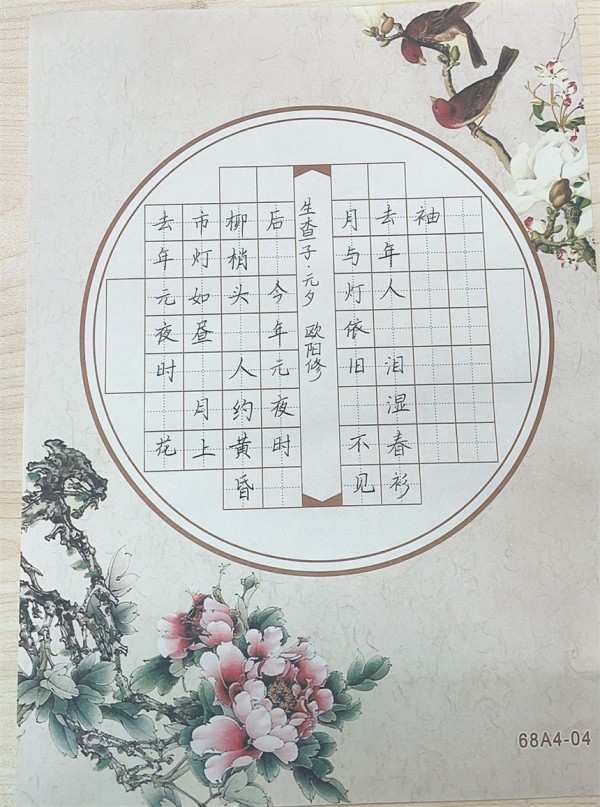 去年元夜时 花
市灯如昼 月上
柳梢头 人约黄昏
后 今年元夜时
生查子·元夕 欧阳修
月与灯依旧 不见
去年人 泪湿春衫
袖
68A4-04